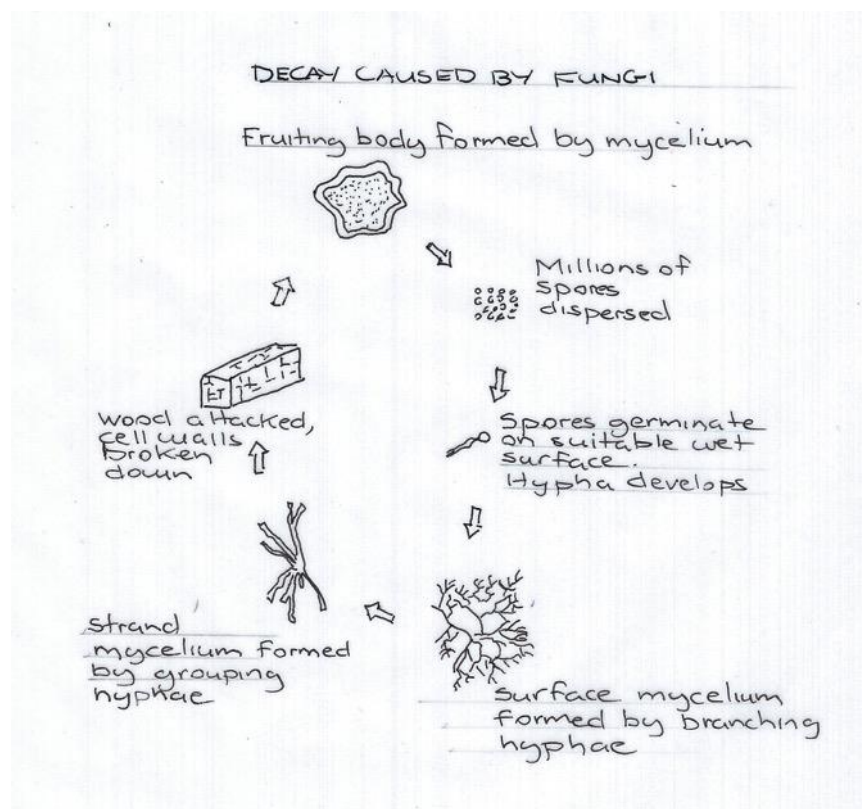 DECAY CAUSED BY FUNGI
Fruiting body formed by mycelium
Millions of
spores
dispersed
Spores germinate
on suitable wet
surface.
Hypha develops
surface mycelium
formed by branching
hyphae
strand
mycelium formed
by grouping
hyphae
wood attacked,
cell walls
broken
down